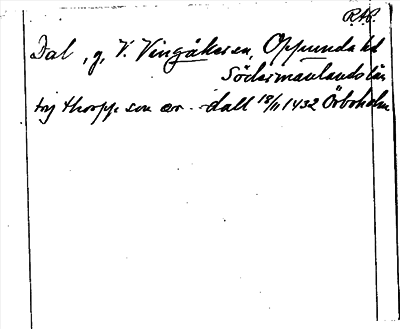 RAP.
Dal, g, V. Vingåker sn, Oppunda hd
Södermanlands län
try thorpp som ær - dall 18/11 1432 Örboholm